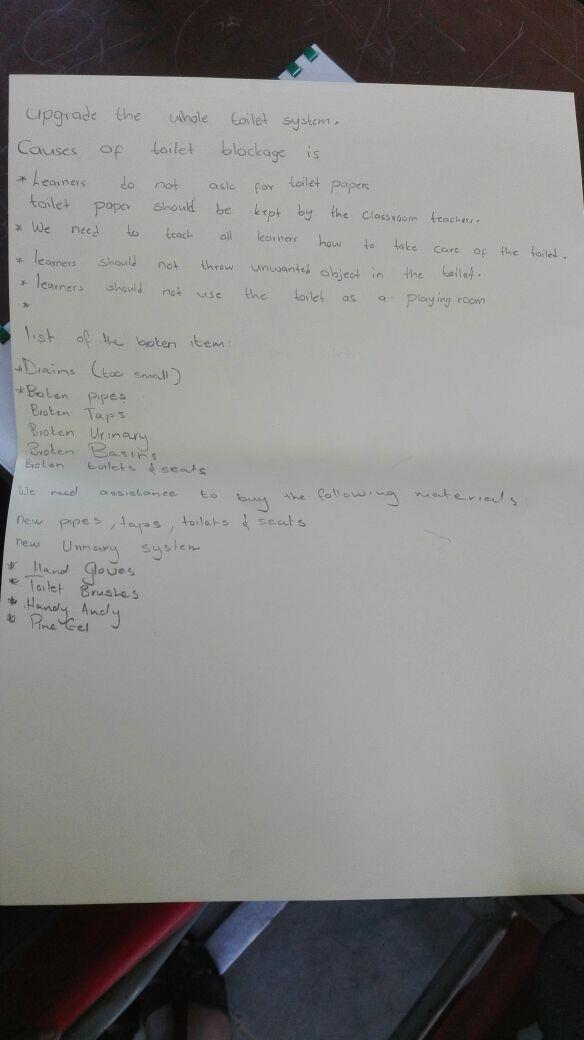 upgrade the whole toilet system.
Causes of toilet blockage is
* Learners do not ask for toilet papers
toilet paper should be kept by the classroom teachers.
* We need to teach all learners how to take care of the toilet.
* learners should not throw unwanted object in the toilet.
* learners should not use the toilet as a playing room
*
list of the boten item:
* Drains (too small)
* Broten pipes
Broten Taps
Broten Urinary
Broten Basins
Broten toilets & seats
We need assistance to buy the following materials:
new pipes, taps, toilets & seats
new Urinary system
* Hand Gloves
* Toilet Brushes
* Handy Andy
* Pine Gel